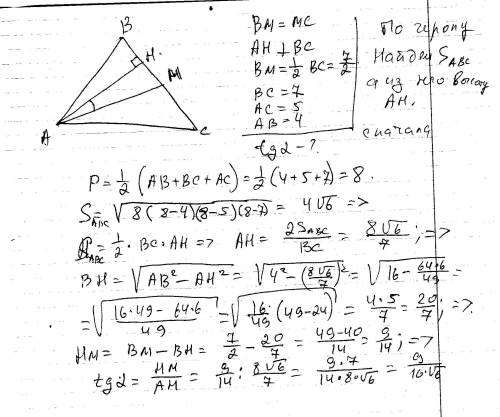 B
H.
M
A
C
BM = MC
AH ⊥ BC
BM = 1/2 BC = 7/2
BC = 7
AC = 5
AB = 4
tg α - ?
По герону
Найдем S_ABC
а из него высоту
AH.
сначала
P = 1/2 (AB + BC + AC) = 1/2 (4+5+7) = 8.
S_ABC = √(8(8-4)(8-5)(8-7)) = 4√6 =>
S_ABC = 1/2 · BC · AH => AH = 2S_ABC/BC = 8√6/7 ; =>
BH = √(AB² - AH²) = √(4² - (8√6/7)²) = √(16 - 64·6/49) =
= √((16·49 - 64·6)/49) = √(16/49 (49-24)) = 4·5/7 = 20/7 ; =>
HM = BM - BH = 7/2 - 20/7 = (49-40)/14 = 9/14 ; =>
tg α = HM/AH = 9/14 : 8√6/7 = 9·7/(14·8·√6) = 9/(16·√6)